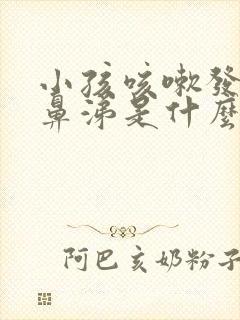 小孩咳嗽發
鼻涕是什麼
阿巴亥奶粉子